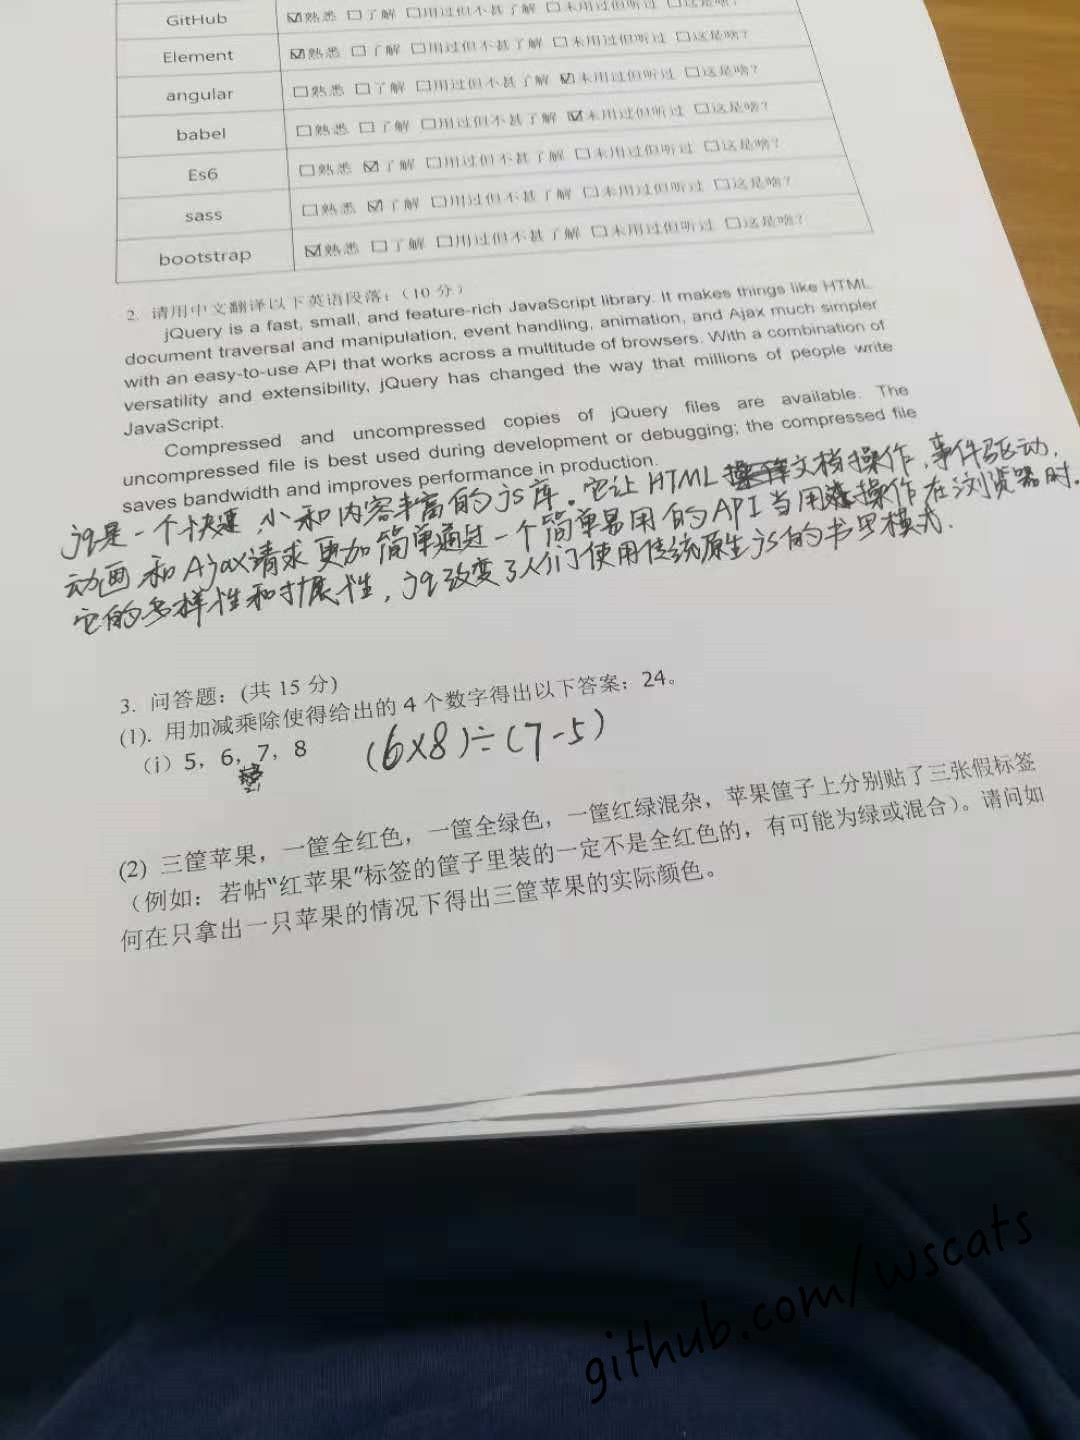 GitHub ☑熟悉 □了解 □用过但不甚了解 □未用过但听过 □这是啥?
Element ☑熟悉 □了解 □用过但不甚了解 □未用过但听过 □这是啥?
angular □熟悉 □了解 □用过但不甚了解 ☑未用过但听过 □这是啥?
babel □熟悉 □了解 □用过但不甚了解 ☑未用过但听过 □这是啥?
Es6 □熟悉 ☑了解 □用过但不甚了解 □未用过但听过 □这是啥?
sass □熟悉 ☑了解 □用过但不甚了解 □未用过但听过 □这是啥?
bootstrap ☑熟悉 □了解 □用过但不甚了解 □未用过但听过 □这是啥?
2. 请用中文翻译以下英语段落:(10 分)
jQuery is a fast, small, and feature-rich JavaScript library. It makes things like HTML
document traversal and manipulation, event handling, animation, and Ajax much simpler
with an easy-to-use API that works across a multitude of browsers. With a combination of
versatility and extensibility, jQuery has changed the way that millions of people write
JavaScript.
Compressed and uncompressed copies of jQuery files are available. The
uncompressed file is best used during development or debugging; the compressed file
saves bandwidth and improves performance in production.
jq是一个快速,小和内容丰富的js库。它让HTML文档操作,事件驱动,
动画和Ajax请求更加简单通过一个简单易用的API当用操作在浏览器时.
它的多样性和扩展性,jq改变了人们使用传统原生js的书写模式.
3. 问答题:(共 15 分)
(1). 用加减乘除使得给出的 4 个数字得出以下答案:24。
(i) 5, 6, 7, 8 (6×8)÷(7-5)
(2) 三筐苹果,一筐全红色,一筐全绿色,一筐红绿混杂,苹果筐子上分别贴了三张假标签
(例如:若帖“红苹果”标签的筐子里装的一定不是全红色的,有可能为绿或混合)。请问如
何在只拿出一只苹果的情况下得出三筐苹果的实际颜色。
github.com/wscats